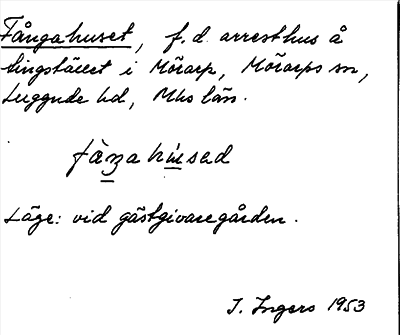 Fångahuset, f.d. arresthus å
tingstället i Mörarp, Mörarps sn,
Luggude hd, Mhs län.
fàŋahùsəd
Läge: vid gästgivaregården.
I. Ingers 1953